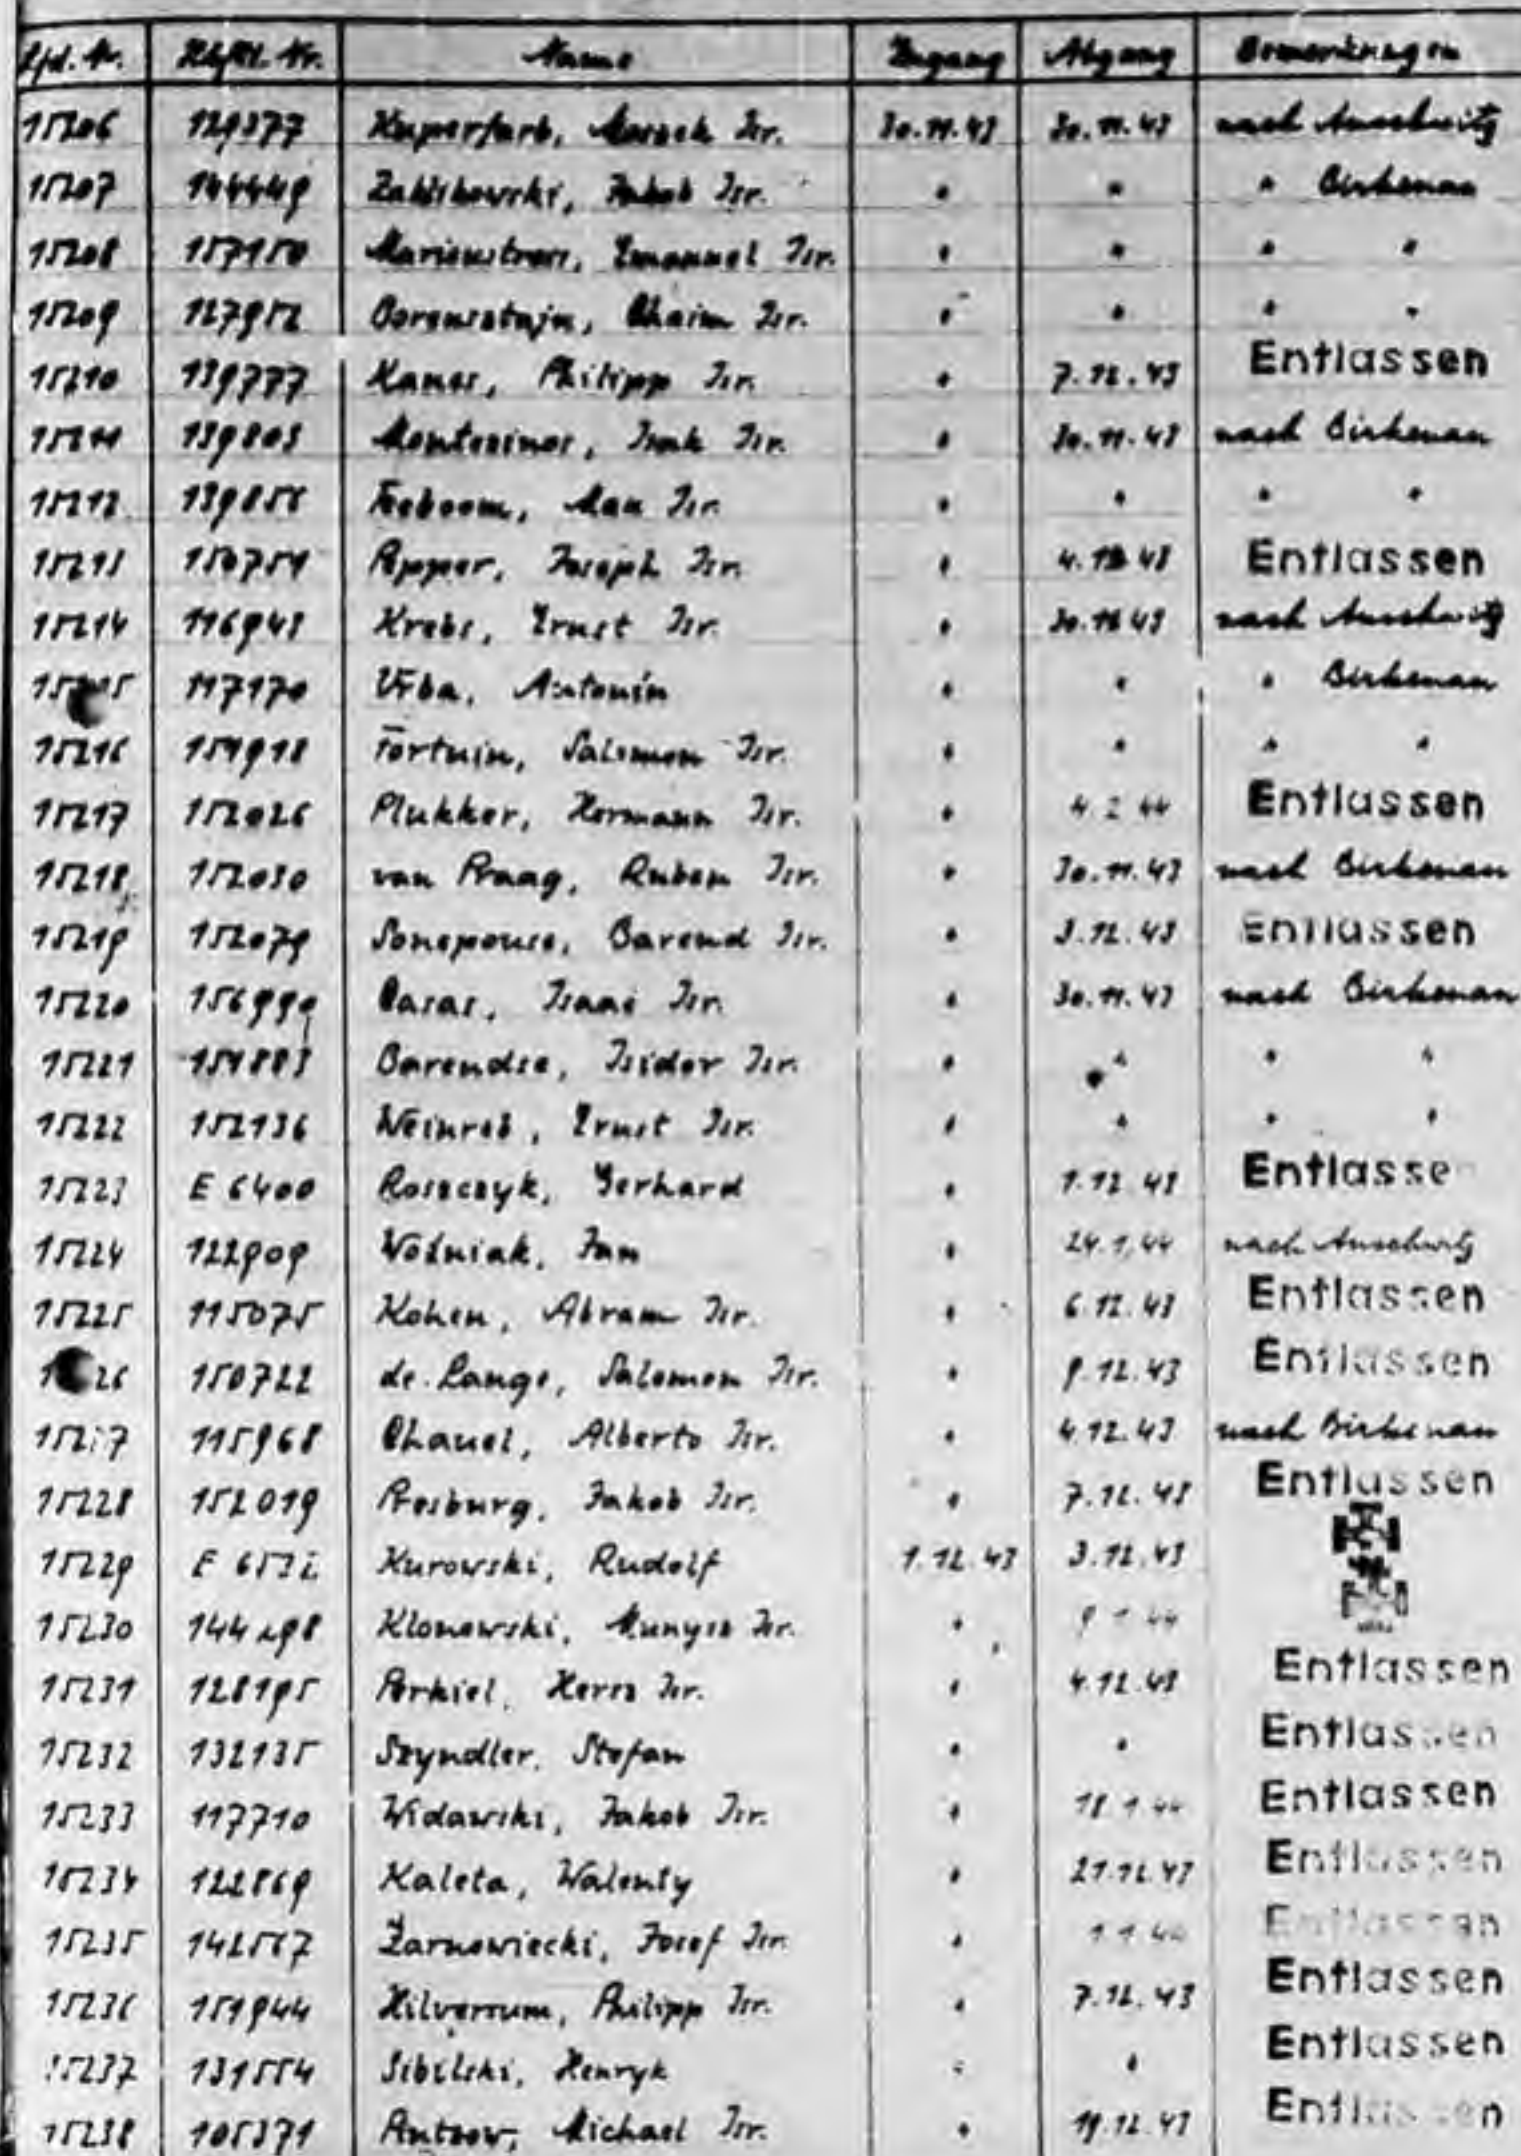 Lfd. Nr. Häftl. Nr. Name Zugang Abgang Bemerkungen
15206 129377 Kuperfarb, Isr. 30.11.43 30.11.43 nach Auschwitz
15207 144449 Jakob Isr. " " " Birkenau
15208 157150 Marienstrass, Emanuel Isr. " " " "
15209 127952 Borensztajn, Chaim Isr. " " " "
15210 139777 Kanes, Philipp Isr. " 7.12.43 Entlassen
15211 139803 Montezinos, Isak Isr. " 30.11.43 nach Birkenau
15212 Max Isr. " " " "
15213 150751 Pepper, Joseph Isr. " 4.12.43 Entlassen
15214 116943 Krebs, Ernst Isr. " 30.11.43 nach Auschwitz
117170 Vrba, Antonin " " " Birkenau
15216 151918 Fortuin, Salomon Isr. " " " "
15217 152026 Plukker, Hermann Isr. " 4.2.44 Entlassen
15218 152030 van Praag, Ruben Isr. " 30.11.43 nach Birkenau
15219 152079 Sonepouse, Barend Isr. " 3.12.43 Entlassen
15220 Casas, Isaac Isr. " 30.11.43 nach Birkenau
15221 151883 Barendse, Isidor Isr. " " " "
15222 152136 Weinreb, Ernst Isr. " " " "
15223 E 6400 Roszczyk, Gerhard " 1.12.43 Entlasse
15224 122909 Woźniak, Jan " 24.1.44 nach Auschwitz
15225 115075 Kohen, Abram Isr. " 6.12.43 Entlassen
150722 de Lange, Salomon Isr. " 9.12.43 Entlassen
115968 Chauel, Alberto Isr. " 4.12.43 nach Birkenau
15228 152019 Presburg, Jakob Isr. " 7.12.43 Entlassen
15229 Kurowski, Rudolf 1.12.43 3.12.43
15230 Klonowski, Isr. " 9.1.44
15231 128195 Perkiel, Hersz Isr. " 4.12.43 Entlassen
15232 132135 Szyndler, Stefan " " Entlassen
15233 117710 Widawski, Jakob Isr. " 18.1.44 Entlassen
15234 122869 Kaleta, Walenty " 21.12.43 Entlassen
15235 142567 Żarnowiecki, Josef Isr. " 1.1.44 Entlassen
15236 151944 Hilversum, Philipp Isr. " 7.12.43 Entlassen
15237 131554 Sibilski, Henryk " " Entlassen
15238 105371 Michael Isr. " 19.12.43 Entlassen